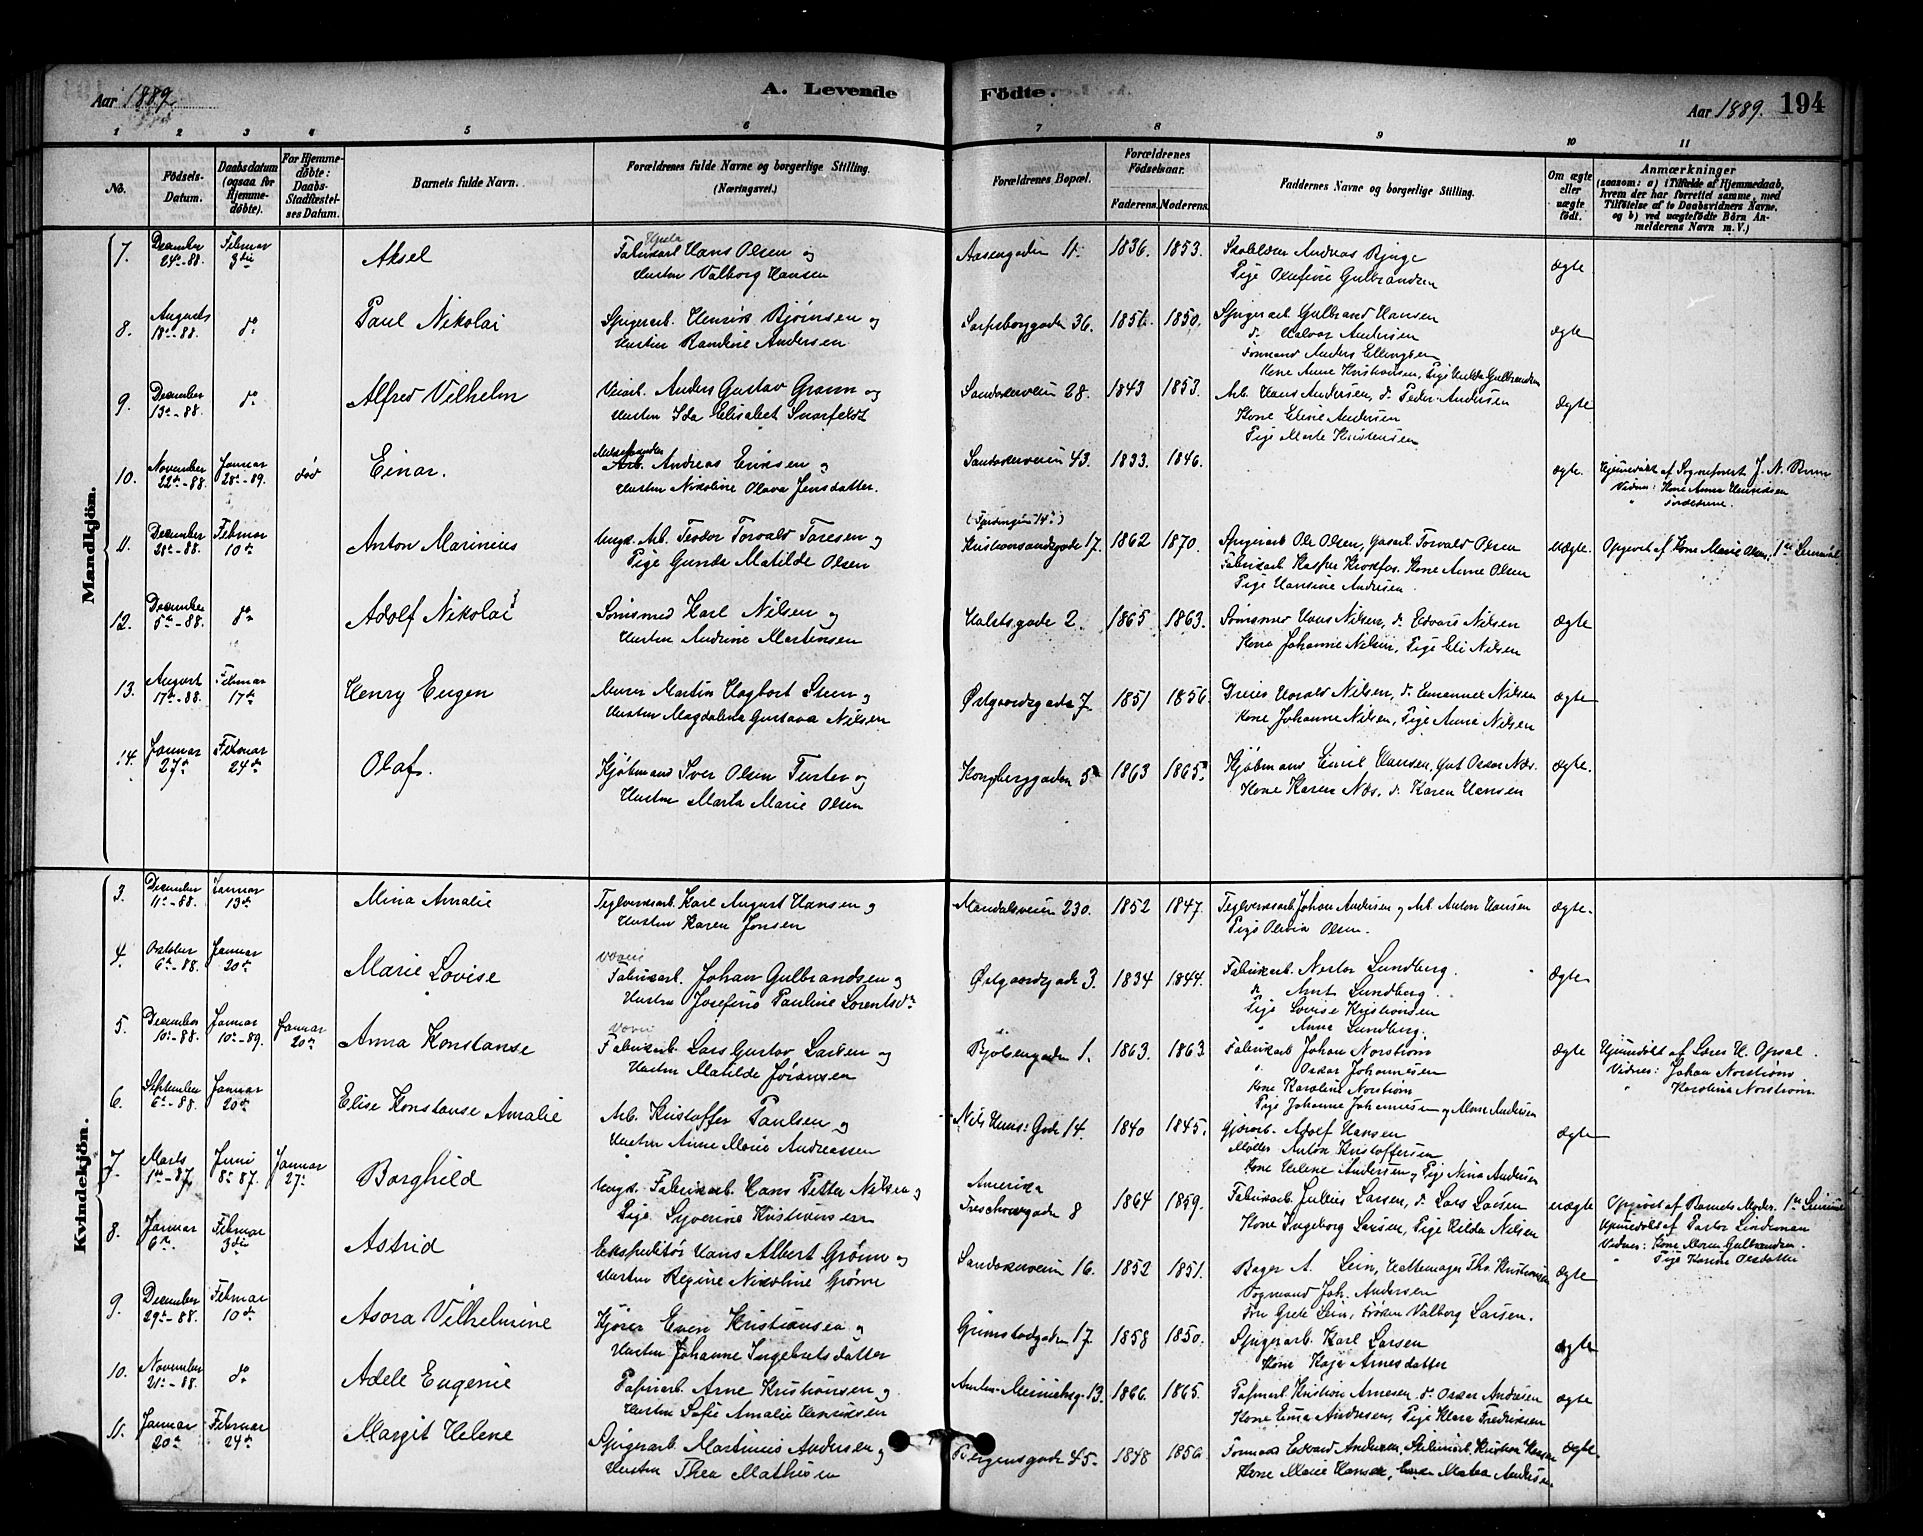 Aar 1889
A. Levende
Födte.
Aar 1889. 194
1 2 3 4 5 6 7 8 9 10 11
No.
Födsels-Datum.
Daabsdatum (ogsaa for Hjemme-döbte).
For Hjemme-döbte: Daabs-Stadfæstel-ses Datum.
Barnets fulde Navn.
Forældrenes fulde Navne og borgerlige Stilling. (Næringsvei.)
Forældrenes Bopæl.
Forældrenes Födselsaar.
Faderens. Moderens.
Faddernes Navne og borgerlige Stilling.
Om ægte eller uægte födt.
Anmærkninger
(saasom: a) i Tilfælde af Hjemmedaab, hvem der har forrettet samme, med Tilföielse af to Daabsvidners Navne, og b) ved uægtefödte Börn An-melderens Navn m. V.)
Mandkjön.
7. December 24de-88. Februar 3die Aksel
Fabrikarb. Hans Olsen og
Hustru Valborg Hansen
Aasengaden 11. 1836. 1853.
Andreas
Pige Olufine Gulbrandsen
ægte
8. Augusts 18de-88. do Paul Nikolai
Spigerarb. Henrik Bjørnsen og
Hustru Randine Andersen
Sarpsborggaden 36. 1851. 1850.
Spigerarb Gulbrand Hansen
do Halvor Andersen
Formand Anders Ellingsen
Kone Anne Kristiansen, Pige Hulda Gulbrandsen
ægte
9. December 13de-88. do Alfred Vilhelm
Anders Gustav Grann og
Hustru Ida Elisabet Svarfeldt
Sandakerveien 28. 1843 1853.
Arb. Hans Andersen, do Peder Andersen
Kone Eline Andersen
Pige Marte Kristensen
ægte
10. November 22de-88. Januar 28de-89. død Einar.
Andreas Eriksen og
Hustru Nikoline Olava Jensdatter.
Sandakerveien 43. 1833. 1846.
ægte. Hjemmedøbt af Sogneprest J. N. Brun
Vidner: Kone Anna Henriksen
11. December 28de-88. Februar 10de Anton Marinius
Ungk. Arb. Teodor Torvald Toresen og
Pige Gunda Matilde Olsen
Kristiansandsgade 17. 1862 1870.
Spigerarb Ole Olsen, Torvald Olsen
Fabrikarb Kasper Krokfos. Kone Anne Olsen
Pige Hansine Andersen.
uægte. Opgivet af Kone Marie Olsen. 1ste Leiermaal
12. December 5te-88. do Adolf Nikolai
Sømsmed Karl Nilsen og
Hustru Andrine Martinsen
Halstsgade 2. 1865 1863.
Sømsmed Hans Nilsen, do Edvard Nilsen
Kone Johanne Nilsen, Pige Eli Nilsen
ægte
13. August 17de-88. Februar 17de Henry Eugen
Murer Martin Hagbart Steen og
Hustru Magdalena Gustava Nilsen
Østgaardsgade 7. 1851 1856.
Dreier Harald Nilsen, do Emanuel Nilsen
Kone Johanne Nilsen, Pige Anna Nilsen
ægte
14. Januar 27de Februar 24de Olaf.
Kjøbmand Iver Olsen og
Hustru Marta Marie Olsen
Kongberggaden 5 1863 1865.
Kjøbmand Emil Hansen, Oskar Næs.
Kone Karen Næs. do Karen Hansen
ægte.
Kvindekjön.
3. December 11te-88. Januar 13de Mina Amalie
Teglverksarb. Karl August Hansen og
Hustru Karen Jonsen
Mandalsveien 230. 1852 1847.
Teglverksarb Johan Andersen og Arb Anton Hansen
Pige Olivia Olsen.
ægte.
4. October 6te-88. Januar 20de Marie Lovise
Fabrikarb. Johan Gulbrandsen og
Hustru Josefine Pauline Lorentsdr
Østgaardsgade 3. 1834 1844.
Fabrikarb. Nestor Lundberg.
do Arnt Lundberg.
Pige Lovise Kristiansen
" Anna Lundberg.
ægte
5. December 10de-88. Januar 10de-89. Januar 20de Anna Konstanse
Fabrikarb. Lars Gustav Larsen og
Hustru Matilde Jøransen
Bjølsengaden 1. 1863. 1863
Fabrikarb Johan Norstrøm
" Oskar Johannesen
Kone Karoline Norstrøm
Pige Johanne Johannesen og Anne Andersen
ægte Hjemmedøbt af Lars H. Opsal.
Vidner: Johan Norstrøm
" Karolina Norstrøm
6. September 6te-88. Januar 20de Elise Konstanse Amalie
Arb. Kristoffer Paulsen og
Hustru Anne Marie Andreassen
Nils Huus: Gade 14. 1840 1845.
Adolf Hansen
Møller Anton Kristoffersen
Kone Helene Andersen og Pige Nina Andersen
ægte
7. Marts 1ste-87. Juni 8de 87. Januar 27de Borghild
Ungk. Fabrikarb. Hans Petter Nilsen og
Pige Syverine Kristiansen
Amerika
Treschowsgade 8 1864 1859.
Fabrikarb. Julius Larsen, do Lars Larsen
Kone Ingeborg Larsen, Pige Hilda Nilsen
uægte Opgivet af Barnets Moder. 1ste Leiermaal
Hjemmedøbt af Pastor Lindeman
Vidner: Kone Maren Gulbrandsen.
" Pige Karine Olsdatter
8. Januar 6te Februar 3die Astrid
Ekspeditør Hans Albert Grønn og
Hustru Regine Nikoline Grønn
Sandakerveien 16. 1852 1851.
Bager A. Lein, Hattemager Ths. Kristiansen
Vogmand Joh. Andersen
Fru Grete Lein, Frøken Valborg Larsen.
ægte
9. December 29de-88. Februar 10de Asora Vilhelmine
Kjører Even Kristiansen og
Hustru Johanne Ingebretsdatter
Grimstadgaden 17 1858 1850.
Spigerarb Karl Larsen
Kone Kaja Arnesdatter
ægte
10. November 21de-88. do Adele Eugenie
Papirarb. Arne Kristiansen og
Hustru Sofie Amalie Henriksen
13. 1866. 1865.
Papirarb Kristian Arnesen, do Oskar Andersen
Kone Ema Andersen, Pige Klara Fredriksen
ægte
11. Januar 20de Februar 24de Margit Helene
Spigerarb Martinius Andersen og
Hustru Thea Mathisen
Bergensgade 45. 1848 1856.
Formand Edvard Andersen, Kristian Hansen
Kone Marie Hansen, Matea Andersen
ægte.